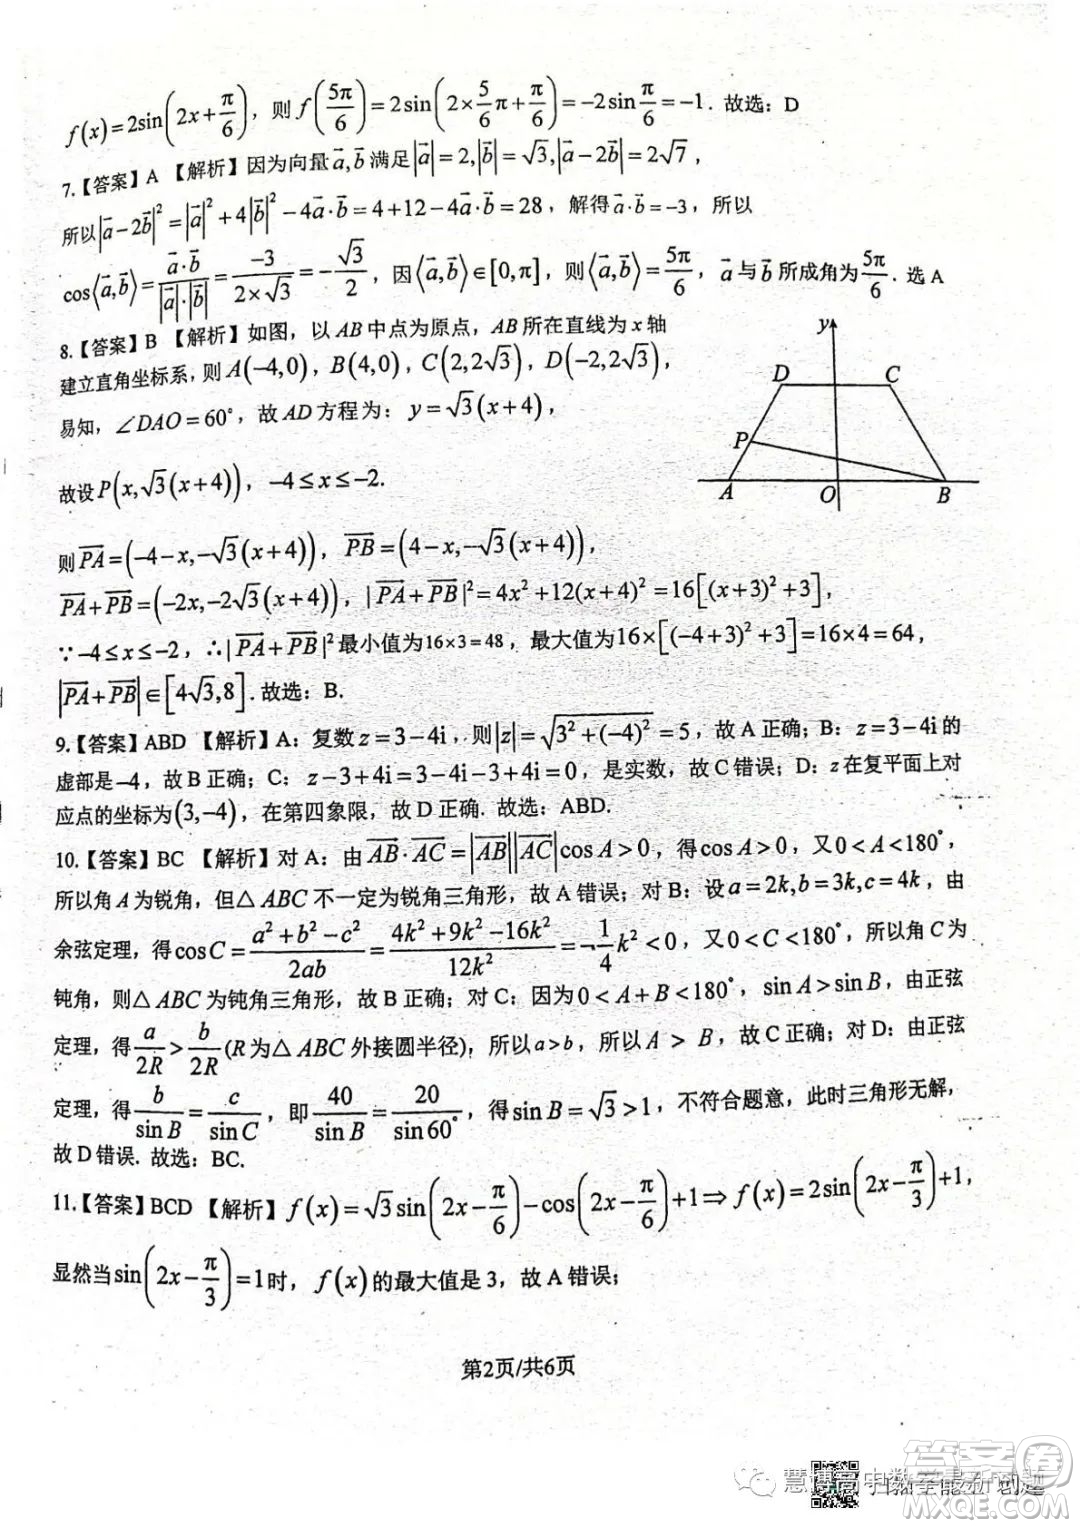 f(x)=2sin(2x+π/6)，则f(5π/6)=2sin(2×5/6π+π/6)=-2sinπ/6=-1．故选：D
7.【答案】A 【解析】因为向量a⃗,b⃗满足|a⃗|=2,|b⃗|=√3,|a⃗-2b⃗|=2√7，
所以|a⃗-2b⃗|²=|a⃗|²+4|b⃗|²-4a⃗·b⃗=4+12-4a⃗·b⃗=28，解得a⃗·b⃗=-3，所以
cos⟨a⃗,b⃗⟩=a⃗·b⃗/(|a⃗|·|b⃗|)=-3/(2×√3)=-√3/2，因⟨a⃗,b⃗⟩∈[0,π]，则⟨a⃗,b⃗⟩=5π/6，a⃗与b⃗所成角为5π/6．选A
8.【答案】B 【解析】如图，以AB中点为原点，AB所在直线为x轴
建立直角坐标系，则A(-4,0)，B(4,0)，C(2,2√3)，D(-2,2√3)，
易知，∠DAO=60°，故AD方程为：y=√3(x+4)，
故设P(x,√3(x+4))，-4≤x≤-2.
y
D C
P
A O B
则PA⃗=(-4-x,-√3(x+4))，PB⃗=(4-x,-√3(x+4))，
PA⃗+PB⃗=(-2x,-2√3(x+4))，|PA⃗+PB⃗|²=4x²+12(x+4)²=16[(x+3)²+3]，
∵-4≤x≤-2，∴|PA⃗+PB⃗|²最小值为16×3=48，最大值为16×[(-4+3)²+3]=16×4=64，
|PA⃗+PB⃗|∈[4√3,8]．故选：B.
9.【答案】ABD 【解析】A：复数z=3-4i，则|z|=√(3²+(-4)²)=5，故A正确；B：z=3-4i的
虚部是-4，故B正确；C：z-3+4i=3-4i-3+4i=0，是实数，故C错误；D：z在复平面上对
应点的坐标为(3,-4)，在第四象限，故D正确．故选：ABD.
10.【答案】BC 【解析】对A：由AB⃗·AC⃗=|AB⃗||AC⃗|cosA>0，得cosA>0，又0<A<180°，
所以角A为锐角，但△ABC不一定为锐角三角形，故A错误；对B：设a=2k,b=3k,c=4k，由
余弦定理，得cosC=(a²+b²-c²)/2ab=(4k²+9k²-16k²)/12k²=-1/4k²<0，又0<C<180°，所以角C为
钝角，则△ABC为钝角三角形，故B正确；对C：因为0<A+B<180°，sinA>sinB，由正弦
定理，得a/2R>b/2R(R为△ABC外接圆半径)，所以a>b，所以A>B，故C正确；对D：由正弦
定理，得b/sinB=c/sinC，即40/sinB=20/sin60°，得sinB=√3>1，不符合题意，此时三角形无解，
故D错误．故选：BC.
11.【答案】BCD 【解析】f(x)=√3sin(2x-π/6)-cos(2x-π/6)+1⇒f(x)=2sin(2x-π/3)+1，
显然当sin(2x-π/3)=1时，f(x)的最大值是3，故A错误；
第2页/共6页
答案圈
MXQE.COM